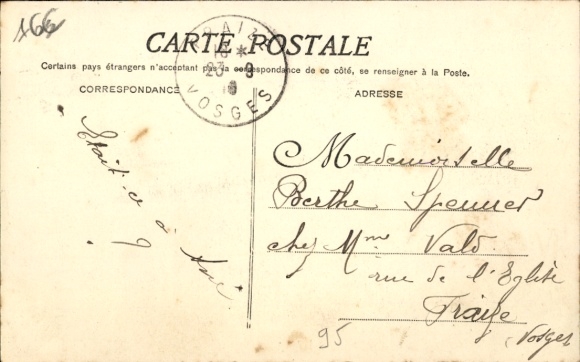 166
CARTE POSTALE
Certains pays étrangers n'acceptant pas la correspondance de ce côté, se renseigner à la Poste.
CORRESPONDANCE
ADRESSE
23 9
VOSGES
Etait-ce à
?
Mademoiselle
Berthe Spenner
chez Mme Vald
rue de l'Eglise
Fraize
Vosges
95